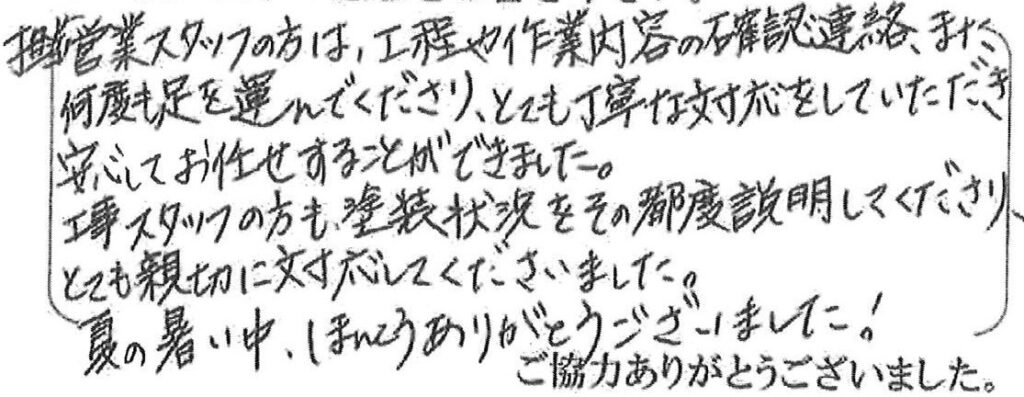 担当営業スタッフの方は、工程や作業内容の確認連絡、また
何度も足を運んでくださり、とても丁寧な対応をしていただき
安心してお任せすることができました。
工事スタッフの方も、塗装状況をその都度説明してくださり、
とても親切に対応してくださいました。
夏の暑い中、ほんとうありがとうございました!
ご協力ありがとうございました。